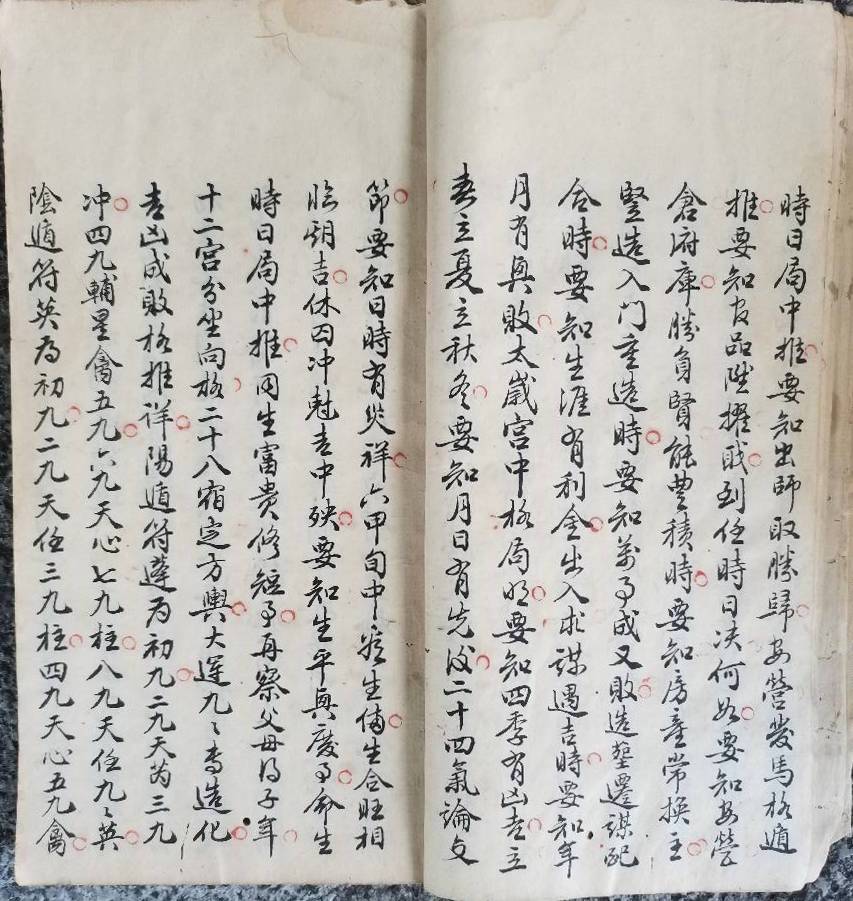 時日局中推要知出師取勝歸安營發馬格遁
推要知官品陞擢陟到任時日决何如要知安營
倉府庫勝負賢能豊積時要知房産常換主
豎造入门重造時要知萬事成又敗造塟遷謀配
合時要知生涯有利金出入求謀遇吉時要知年
月有興敗太歲宫中格局明要知四季有凶吉立
春立夏立秋冬要知月日有先後二十四氣論交
節要知日時有災祥六甲旬中發生俻生合旺相
臨朝吉休囚冲尅吉中殃要知生平興廢事命生
時日局中推因生富貴修短事再察父母得子年
十二宫分坐向格二十八宿定方輿大運九〻李造化
吉凶成敗格推祥陽遁符蓬为初九二九天芮三九
冲四九輔星禽五九六九天心七九柱八九天任九〻英
陰遁符英为初九二九天任三九柱四九天心五九禽